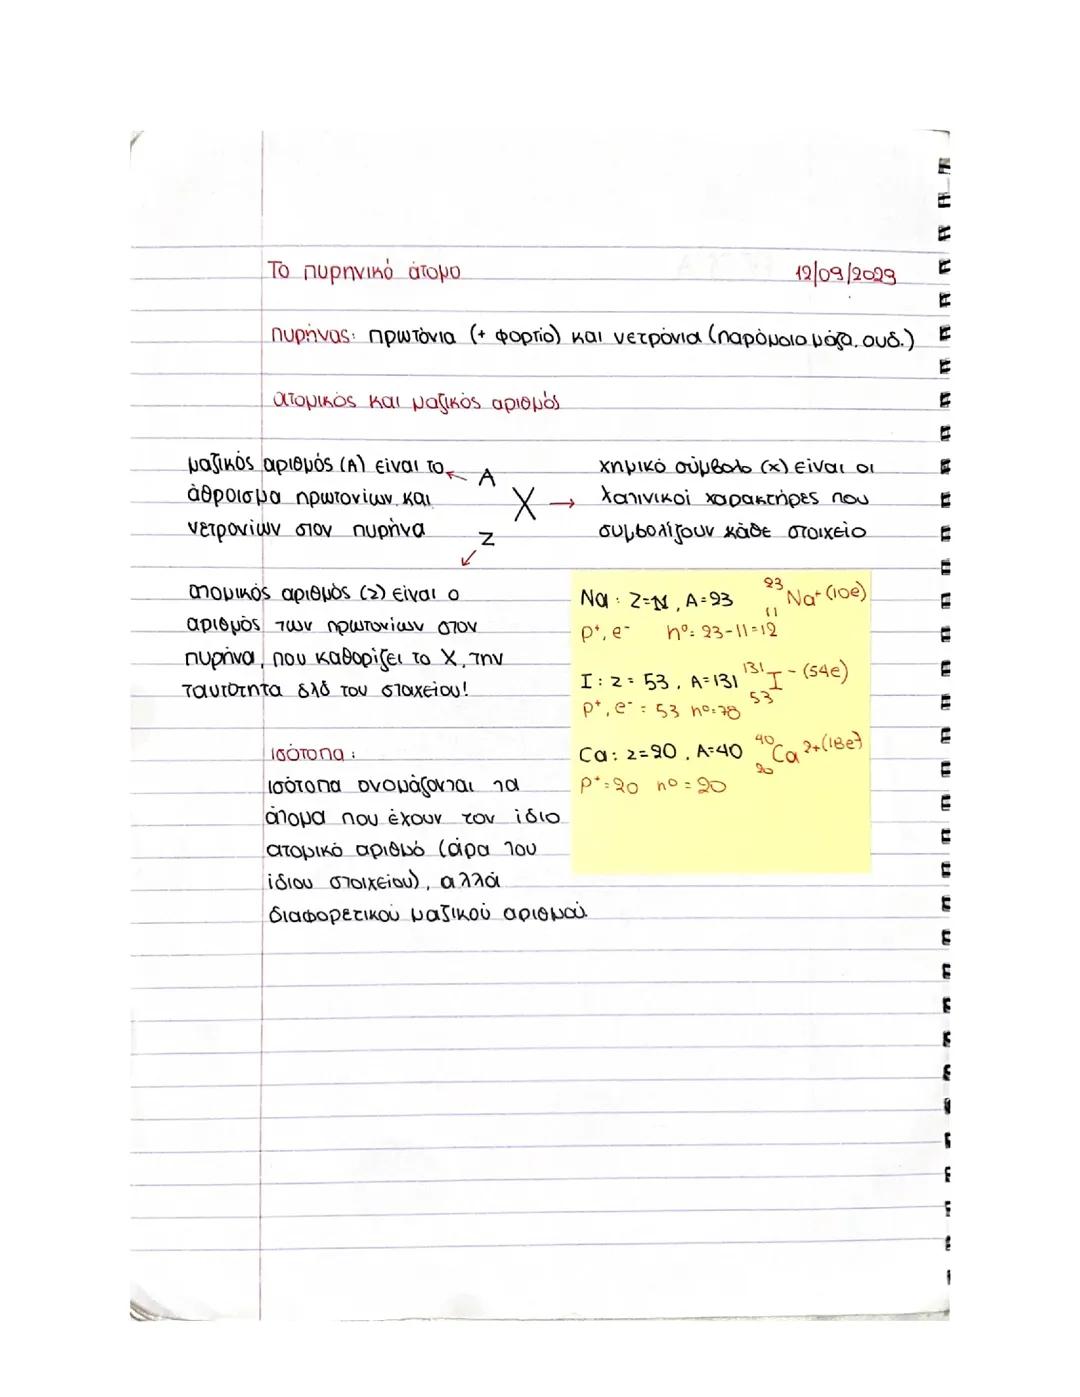 Το πυρηνικό άτομο 12/09/2023
πυρήνας: πρωτόνια (+ φορτίο) και νετρόνια (παρόμοιο μάζα, ουδ.)
ατομικός και μαζικός αριθμός
μαζικός αριθμός (Α) είναι το
άθροισμα πρωτονίων και
νετρονίων στον πυρήνα
A
X
Z
χημικό σύμβολο (x) είναι οι
λατινικοί χαρακτήρες που
συμβολίζουν κάθε στοιχείο
ατομικός αριθμός (z) είναι ο
αριθμός των πρωτονίων στον
πυρήνα, που καθορίζει το Χ, την
ταυτότητα δλδ του στοιχείου!
Na: Z=11, A=23 23 11 Na+ (10e)
p+, e- nº: 23-11=12
I: z = 53, A=131 131 53 I - (54e)
p+, e- = 53 nº=78
Ca: z=20, A=40 40 20 Ca 2+ (18e)
p+=20 nº = 20
ισότοπα:
ισότοπα ονομάζονται τα
άτομα που έχουν τον ίδιο
ατομικό αριθμό (άρα του
ίδιου στοιχείου), αλλά
διαφορετικού μαζικού αριθμού.